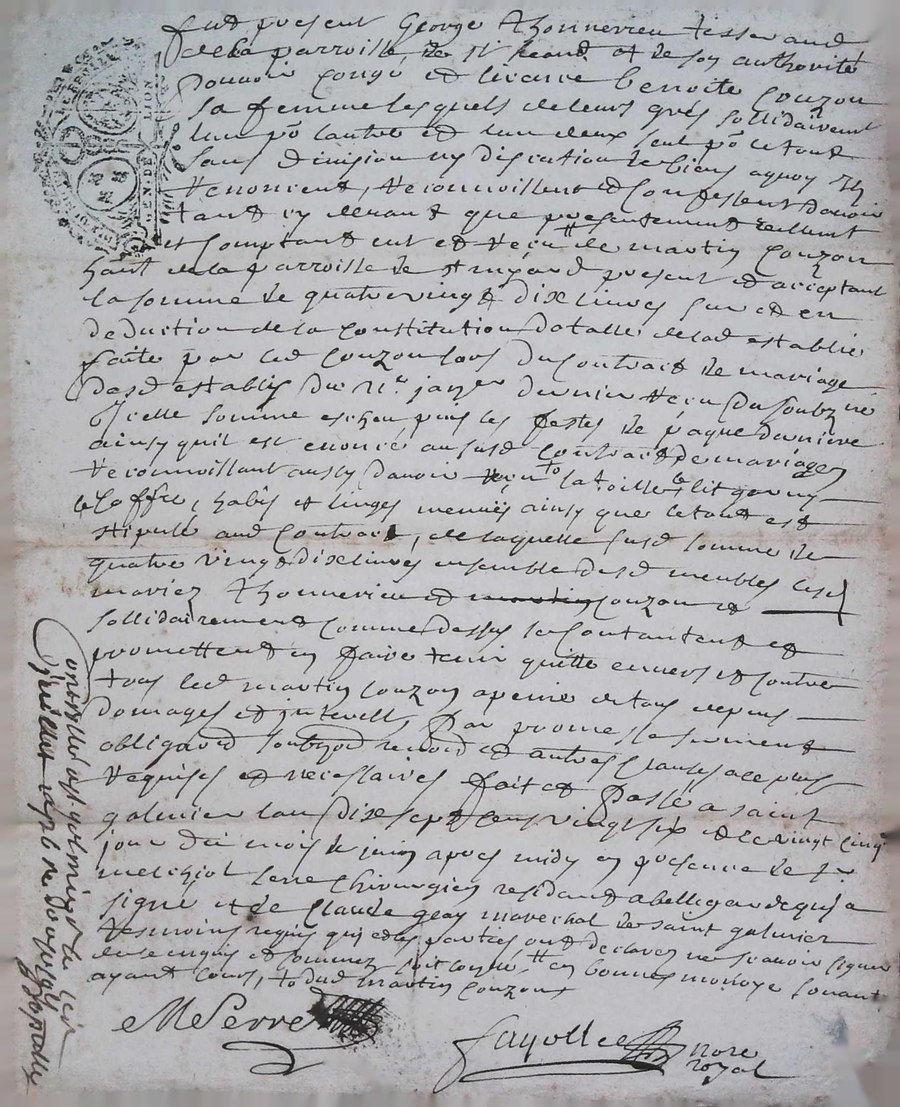 GEN. DE LION
fut present George Thonnerieu tisserand
de la parroisse de St heand et de son authorité
pouvoir congé et licence benoite Couzon
sa femme lesquels de leurs grés sollidairement
lun po lautre et lun deux seul po le tout
sans division ny discution de biens aquoy ils
renoncent, reconnoissent et Confessent davoir
tant cy devant que presentement reellemt
et Comptant eut et reçu de martin Couzon
hant de la parroisse de st present et acceptant
la somme de quatrevingt dix livres sur et en
deduction de la Constitution dotalle de lad establie
faite par led Couzon lors du Contrait de mariage
desd establis du janer dernier reçu du soubzné
Icelle somme escheu puis les festes de paque derniere
ainsy quil est enoncé ausd Contrait de mariage
reconnoissant aussy davoir reçu la toille, lit garny
le Coffre, habis et linges menues ainsy que le tout est
stipulé aud Contrait, de laquelle susd somme de
quatre vingt dix livres ensemble desd meubles lesd
mariez Thonnerieu et martin Couzon et
sollidairement Comme dessus se Contantent et
promettent en faire tenir quitte envers et contre
tous led martin Couzon a peine de tous depens
domages et interests, Par promes serment
obligaon soubzon renon et autres clauses a ce plus
requises et necessaires fait et Passé a saint
galmier lan dix sept cens vingt six et le vingt cinq
jour du mois de juin apres midy en presence de sr
melchiol serre Chirurgien residant a bellegarde qui a
signé et de Claude geay marechal de saint galmier
tesmoins requis qui et les parties ont declarez ne scavoir signer
de ce enquis et sommez en bonnes monoye sonant
ayant cours, dud martin Couzon
MSerre
fayolle nore
royal
Controllé a st galmier le
juillet 1726 Rx douze sols